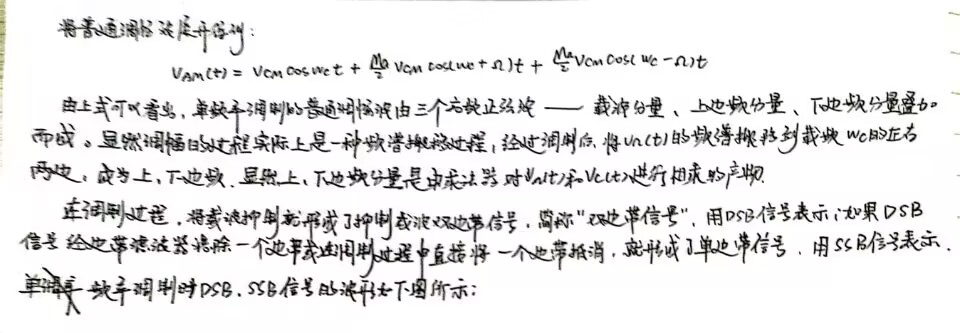 将普通调幅波展开得到：
V_AM(t) = V_cm cos w_c t + M_a/2 V_cm cos(w_c + Ω)t + M_a/2 V_cm cos(w_c - Ω)t
由上式可以看出，单频率调制的普通调幅波由三个高频正弦波 —— 载波分量、上边频分量、下边频分量叠加
而成。显然调幅的过程实际上是一种频谱搬移过程，经过调制后，将 U_Ω(t) 的频谱搬移到载频 w_c 的左右
两边，成为上，下边频. 显然上、下边频分量是由乘法器对 V_Ω(t) 和 V_c(t) 进行相乘的产物.
在调制过程，将载波抑制就形成了抑制载波双边带信号，简称“双边带信号”，用DSB信号表示；如果DSB
信号经边带滤波器滤除一个边带或在调制过程中直接将一个边带抵消，就形成了单边带信号，用SSB信号表示.
单频率调制时DSB、SSB信号的波形如下图所示：